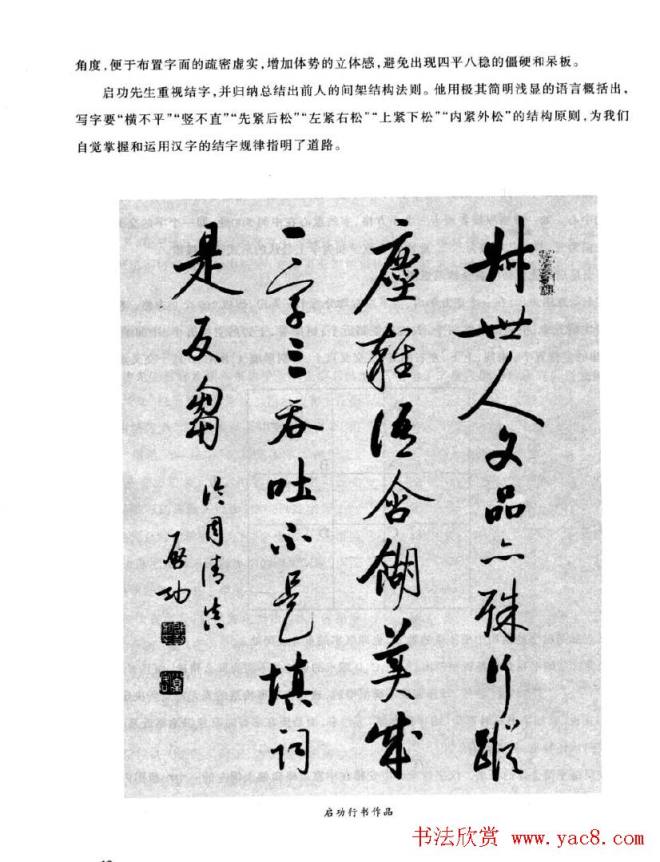 角度，便于布置字面的疏密虚实，增加体势的立体感，避免出现四平八稳的僵硬和呆板。
启功先生重视结字，并归纳总结出前人的间架结构法则。他用极其简明浅显的语言概括出，
写字要“横不平”“竖不直”“先紧后松”“左紧右松”“上紧下松”“内紧外松”的结构原则，为我们
自觉掌握和运用汉字的结字规律指明了道路。
叔世人文品亦殊行蹤
塵雜語含餬美成
一字三吞吐不是填詞
是反芻
論周清真
啟功
启功行书作品
书法欣赏 www.yac8.com